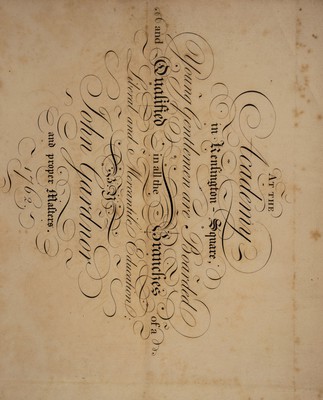 AT THE
Academy
in Kensington-Square.
Young Gentlemen are Boarded
and Qualified in all the Branches of a
Liberal and Mercantile Education;
By
John Gardnor
and proper Masters.
1762.